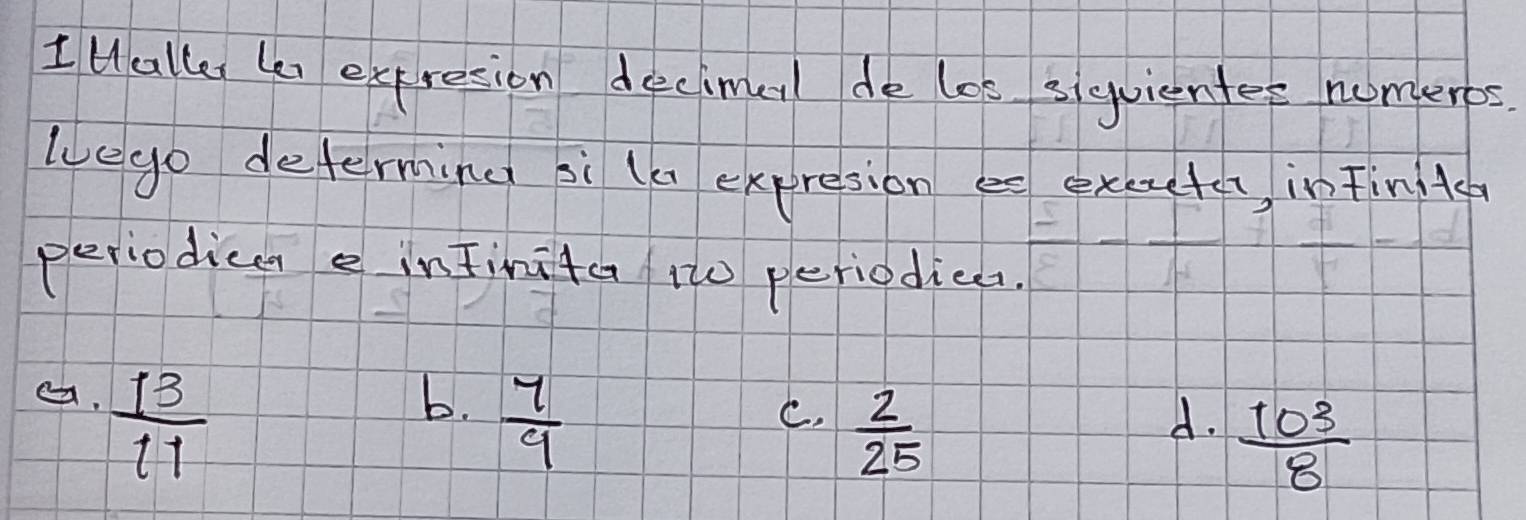 1 Halla la expresion decimal de los siguientes numeros.
luego determina si la expresion es exacta, infinita
periodica e infinita no periodica.
a. 13/11 b. 7/9 c. 2/25 d. 103/8